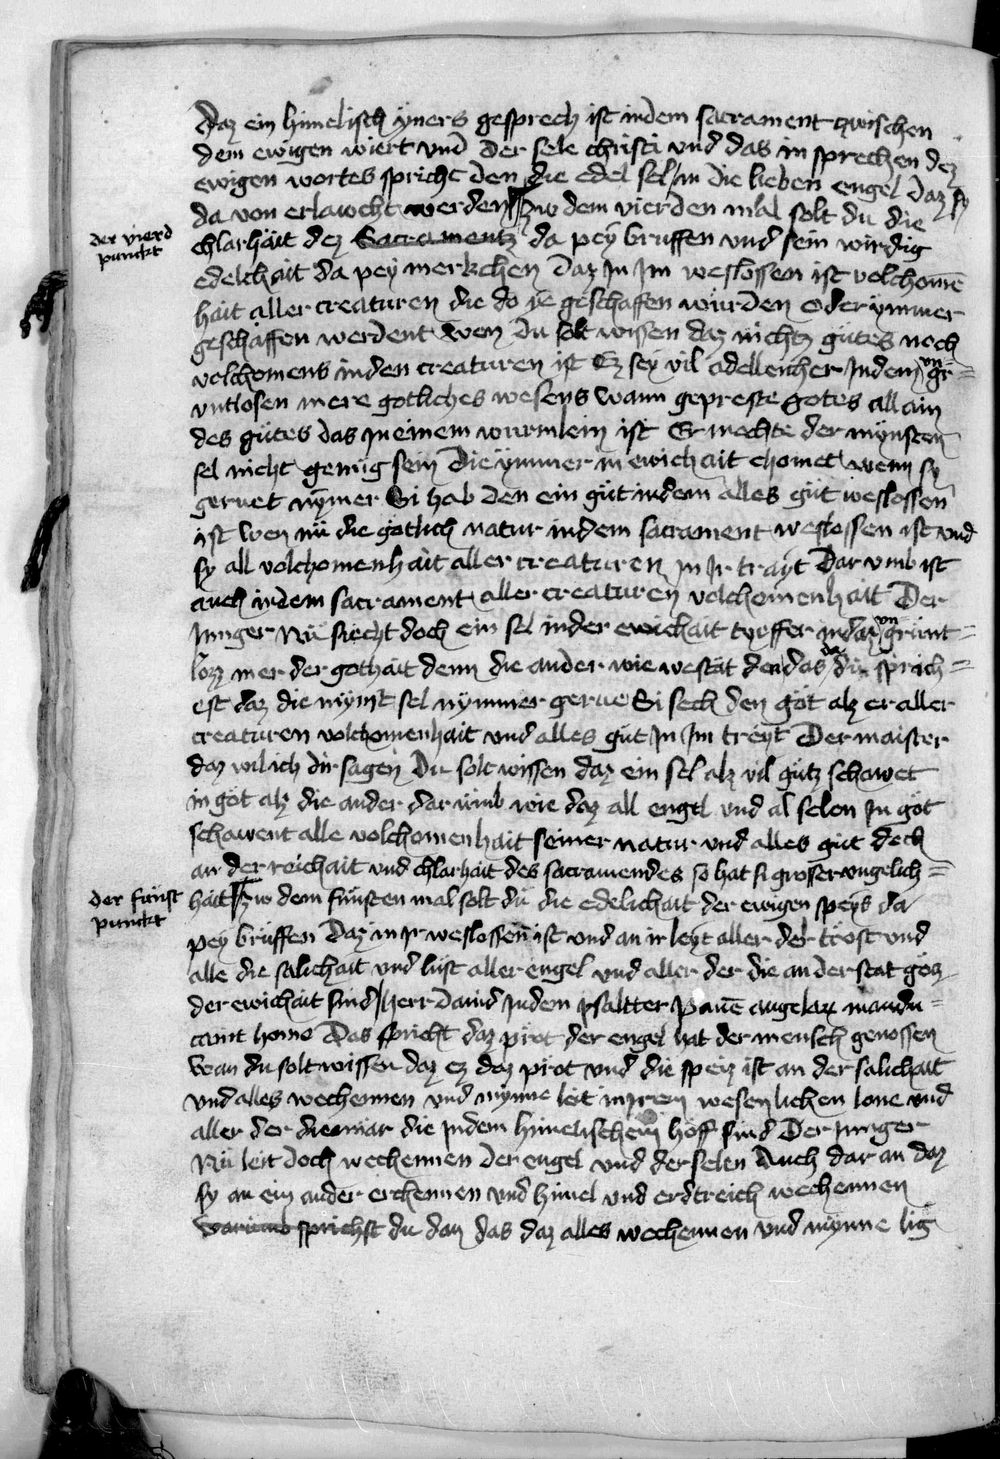 daz ein himelisch yners gesprech ist in dem sacrament zwischen
dem ewigen wiert vnd der sele christi vnd das in sprechen dez
ewigen wortes spricht den die edel sel in die lieben engel daz sy
da von erlawcht werden Zw dem vierden mal solt du die
der vierd
punckt
chlarhäit dez Sacramentz da pey bruffen vnd sein wirdig
edelchait da pey merkchen daz In Im weslossen ist volchomē
häit aller creaturen die do ye geschaffen wurden oder ymmer
geschaffen werdent wen du solt wissen daz nichtz gutes noch
volchomens in den creaturen ist Ez sey vil adelleicher In dem vn gr=
vntlosen mere gotliches wesens wann gepreste gotes all ain
des gütes das In einem wurmlein ist Er mochte der mynsten
sel nicht genüg sein die ymmer in ewichait chomet wenn sy
geruet nymer Si hab den ein güt in dem alles güt weslossen
ist wen nü die götlich natur in dem sacrament weslossen ist vnd
sy all volchomenhait aller creaturen In Ir trayt Dar vmb ist
auch in dem sacrament aller creaturen volchomenhait Der
Iunger Nü siecht doch ein sel in der ewichait tyeffer in daz vn grünt=
lozz mer der gothäit denn die ander wie westät den das daz du sprich=
est daz die mynst sel nymmer gerue Si sech den göt alz er aller
creaturen volchomenhait vnd alles güt In Im treyt Der maister
daz wil ich dir sagen Du solt wissen daz ein sel alz vil gütz schawet
in göt alz die ander dar vmb wie daz all engel vnd al selen In göt
schawent alle volchomenhait seiner natur vnd alles güt doch
an der reichait vnd chlarhäit des sacramendes so hat si grosser vngelich=
der fünft
punckt
häit Zw dem fünften mal solt du die edelichait der ewigen speys da
pey brüffen Daz in Ir weslossen ist vnd an ir leyt aller der trost vnd
alle die sälichait vnd lüst aller engel vnd aller der die an der stat götz
der ewichäit sind herr dauid In dem psaltter Panē angelorum mandu=
cauit homo Das spricht daz pröt der engel hat der mensch genossen
Wan du solt wissen daz ez daz pröt vnd die speiz ist an der sälichait
vnd alles wechennen vnd mynne leit in Irem wesenlichen lone vnd
aller der die In dem himelischem höff sind Der Iunger
Nü leit doch wechennen der engel vnd der selen Auch dar an daz
sy an ein ander erchennen vnd himel vnd erdtreich wechennen
warumb sprichst du dan das daz alles wechennen vnd mynne lig